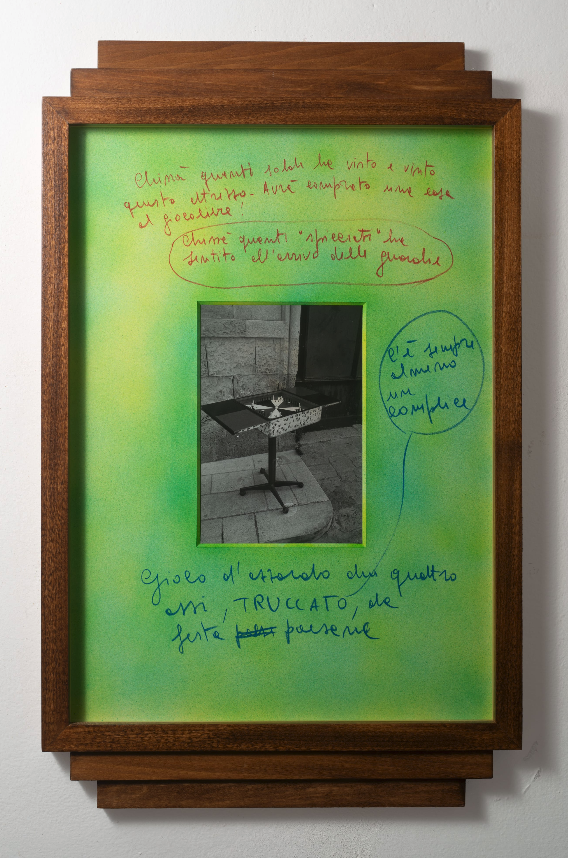 Chissà quanti soldi ha visto e vinto
questo attrezzo. Avrà comprato una casa
al giocoliere!
Chissà quanti "spicciati" ha
sentito all'arrivo delle guardie
C'è sempre
almeno
un
complice
Gioco d'azzardo dei quattro
assi, TRUCCATO, da
festa paesane